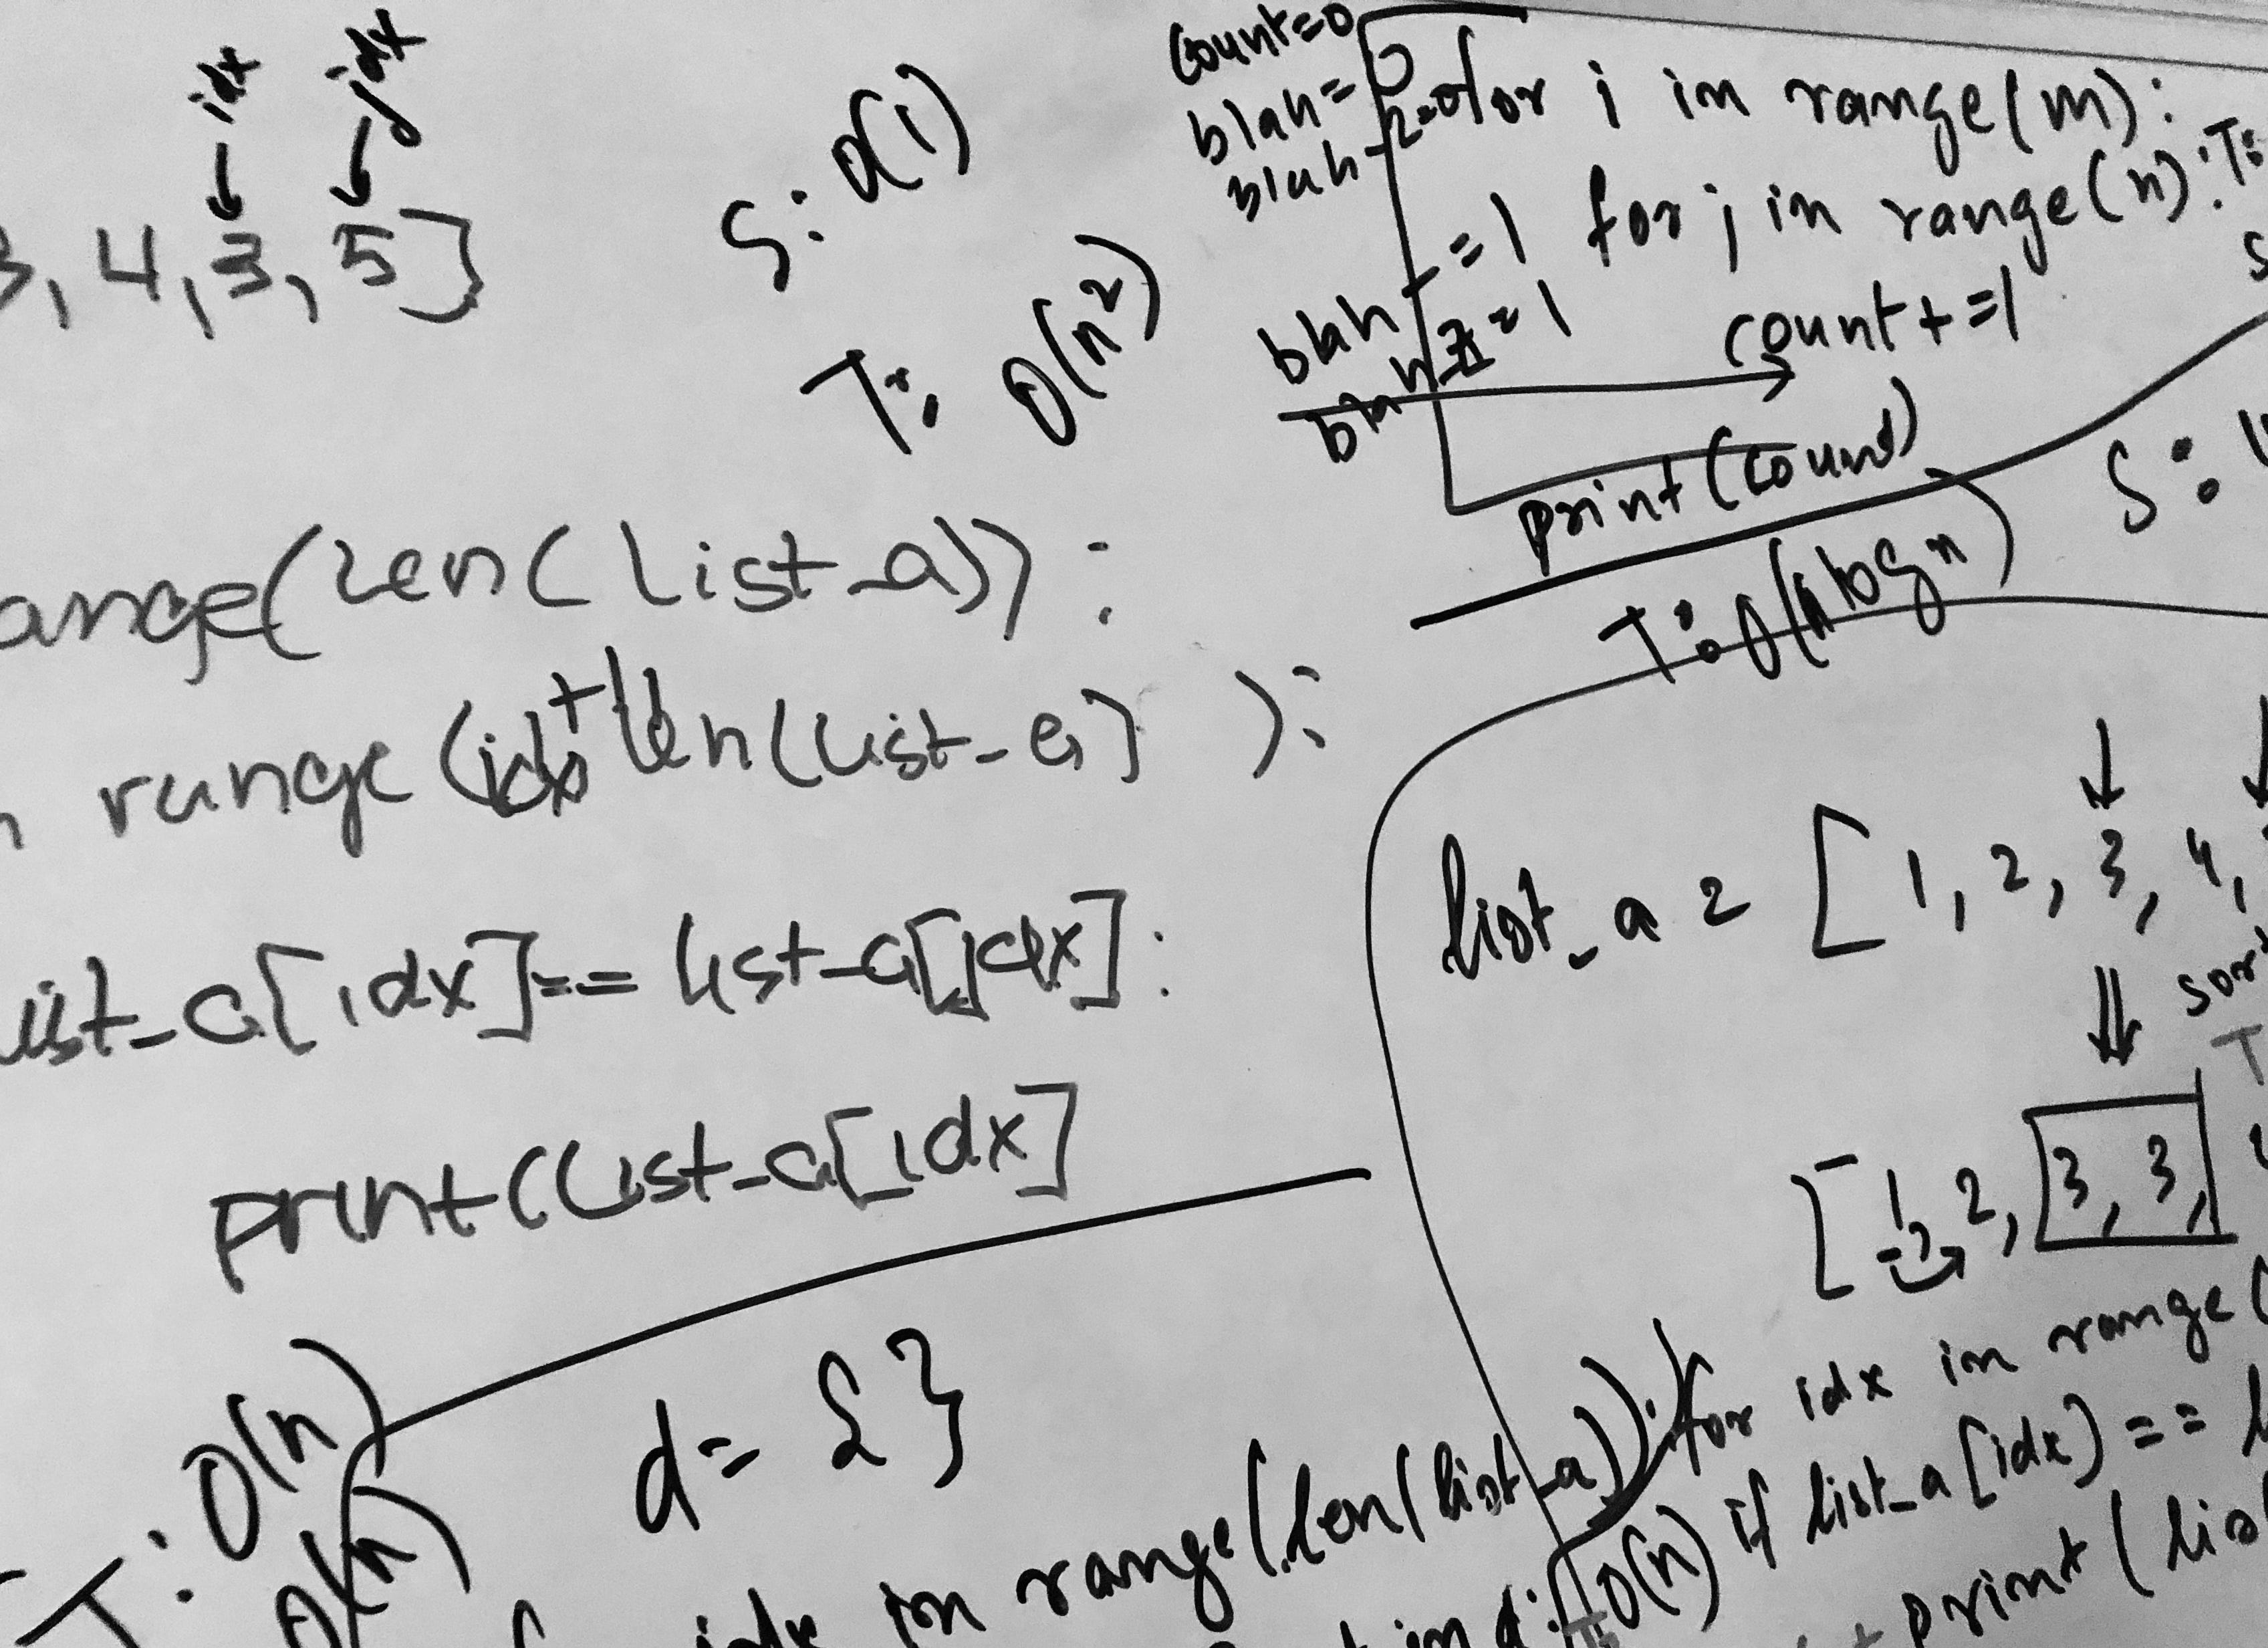 idx jdx
3, 4, 3, 5]
S: O(1)
T: O(n²)
ange(len(list_a)):
range(idx+1 len(list_a) ):
list_a[idx]== list_a[jdx]:
print(list_a[idx]
count=0
blah=0
blah-2=0
for i in range(m):
T:
blah =1 for j in range(n):
blah 2=1
count+=1
print(count)
S:
T: O(nlogn)
list_a = [1, 2, 3, 4,
[1, 2, 3, 3,
for idx in range(
if list_a[idx] ==
print(lis
T: O(n)
O(n)
d= {}
idx in range(len(list_a)):
in d:
T: O(n)